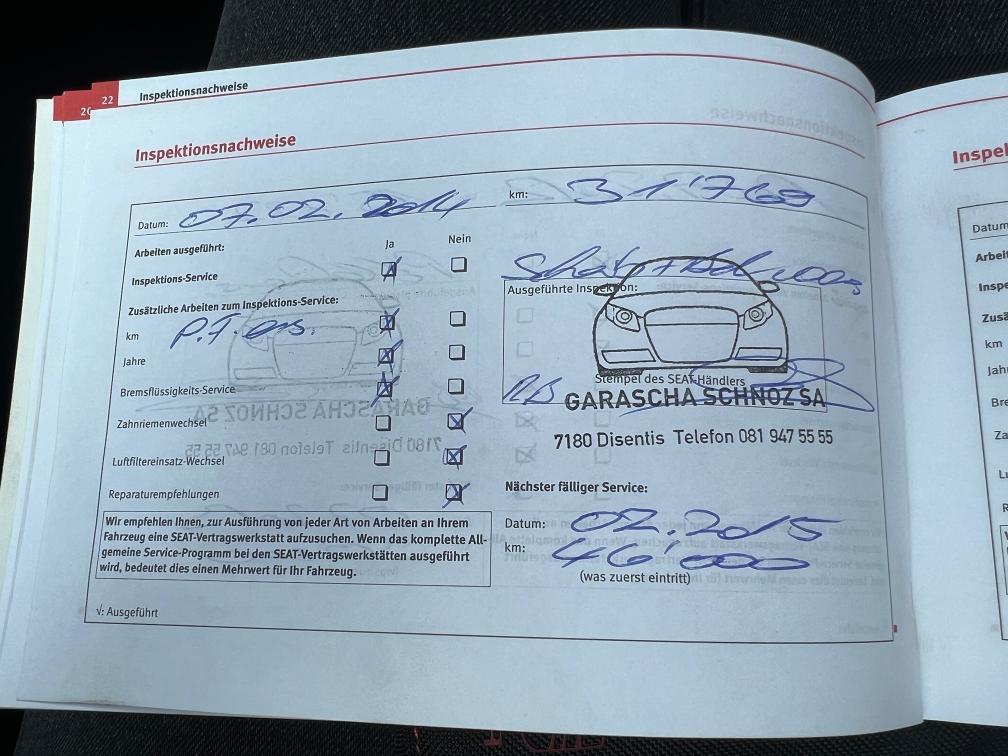 22 Inspektionsnachweise
20
Inspektionsnachweise
Datum: 07.02.2014 km: 31'760
Arbeiten ausgeführt: Ja Nein
Inspektions-Service
Ausgeführte Inspektion:
Zusätzliche Arbeiten zum Inspektions-Service:
km
Jahre
Bremsflüssigkeits-Service
Stempel des SEAT-Händlers
GARASCHA SCHNOZ SA
7180 Disentis Telefon 081 947 55 55
Zahnriemenwechsel
Luftfiltereinsatz-Wechsel
Reparaturempfehlungen
Nächster fälliger Service:
Datum: 02.2015
km: 46'000
(was zuerst eintritt)
Wir empfehlen Ihnen, zur Ausführung von jeder Art von Arbeiten an Ihrem
Fahrzeug eine SEAT-Vertragswerkstatt aufzusuchen. Wenn das komplette All-
gemeine Service-Programm bei den SEAT-Vertragswerkstätten ausgeführt
wird, bedeutet dies einen Mehrwert für Ihr Fahrzeug.
√: Ausgeführt
Inspek
Datum
Arbei
Inspe
Zusä
km
Jah
Bre
Za